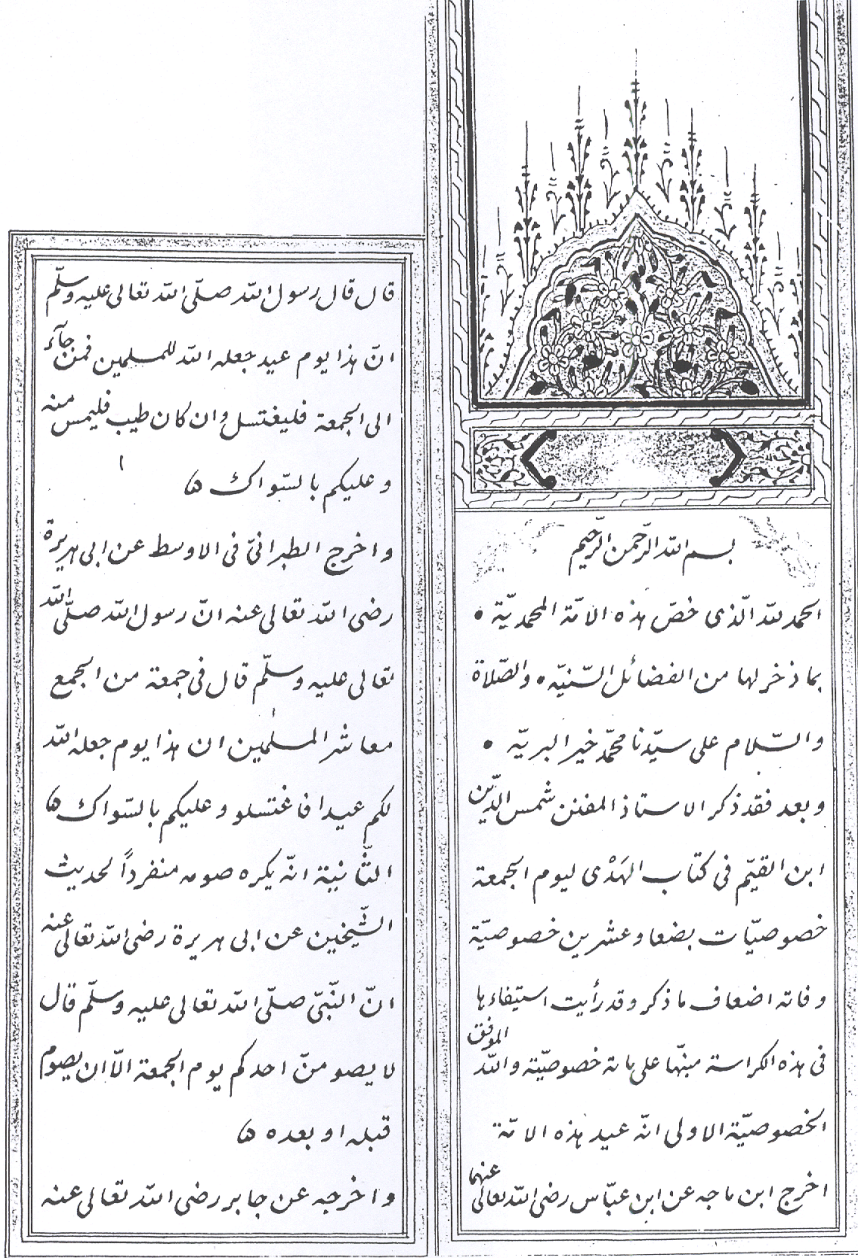 بسم الله الرّحمن الرّحيم
الحمد لله الّذى خصّ هذه الامّة المحمديّة •
بما ذخر لها من الفضائل السّنيّه • والصّلاة
والسّلام على سيّدنا محمّد خير البريّه •
وبعد فقد ذكر الاستاذ المفنن شمس الدّين
ابن القيّم فى كتاب الهَدْى ليوم الجمعة
خصوصيّات بضعا وعشرين خصوصيّة
وفاته اضعاف ما ذكر وقد رأيت استيفاءها
فى هذه الكراسة منبّها على مائة خصوصيّة والله الموفق
الخصوصيّة الاولى انّه عيد هذه الامّة
اخرج ابن ماجه عن ابن عبّاس رضى الله تعالى عنهما
قال قال رسول الله صلّى الله تعالى عليه وسلّم
انّ هذا يوم عيد جعله الله للمسلمين فمن جآء
الى الجمعة فليغتسل وان كان طيب فليمس منه
وعليكم بالسّواك ۵
واخرج الطبرانىّ فى الاوسط عن ابى هريرة
رضى الله تعالى عنه انّ رسول الله صلّى الله
تعالى عليه وسلّم قال فى جمعة من الجمع
معاشر المسلمين ان هذا يوم جعله الله
لكم عيدا فاغتسلو وعليكم بالسّواك ۵
الثّانية انّه يكره صومه منفرداً لحديث
الشّيخين عن ابى هريرة رضى الله تعالى عنه
انّ النّبىّ صلّى الله تعالى عليه وسلّم قال
لا يصومنّ احدكم يوم الجمعة الّا ان يصوم
قبله او بعده ۵
واخرجه عن جابر رضى الله تعالى عنه